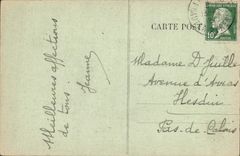 CARTE POSTALE
Meilleures affections
de tous.
Jeanne
Madame D
Avenue d'Arras
Hesdin
Pas-de-Calais